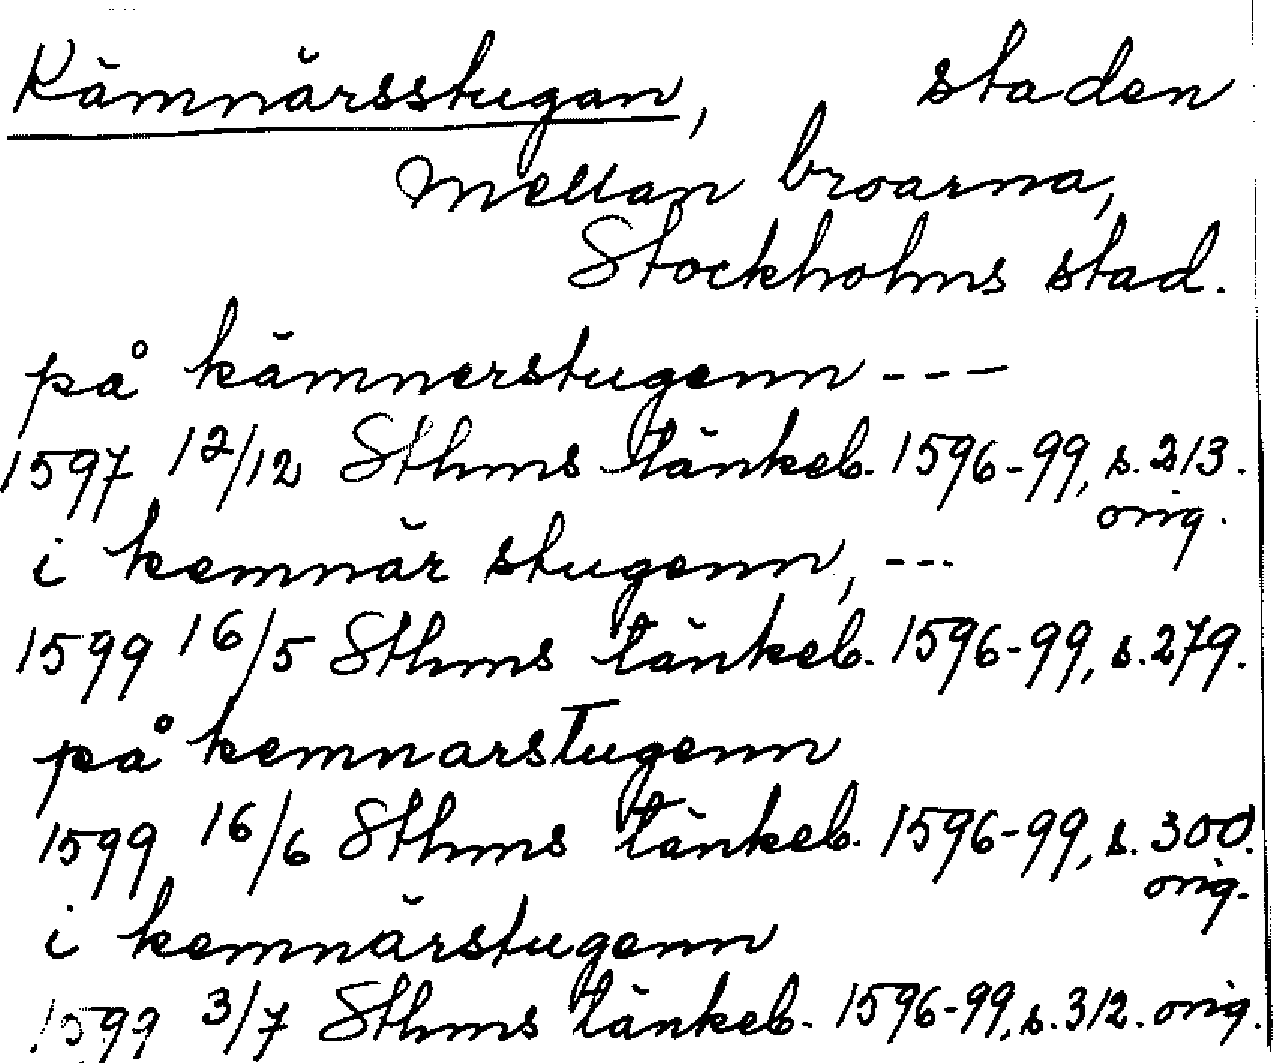 Kämnärsstugan, staden
Mellan broarna,
Stockholms stad.
på kämnerstugenn ---
1597 12/12 Sthms tänkeb. 1596-99, s. 213.
orig.
i kemnär stugenn, ---
1599 16/5 Sthms tänkeb. 1596-99, s. 279.
på kemnarstugenn
1599 16/6 Sthms tänkeb. 1596-99, s. 300.
orig.
i kemnärstugenn
1599 3/7 Sthms tänkeb. 1596-99, s. 312. orig.